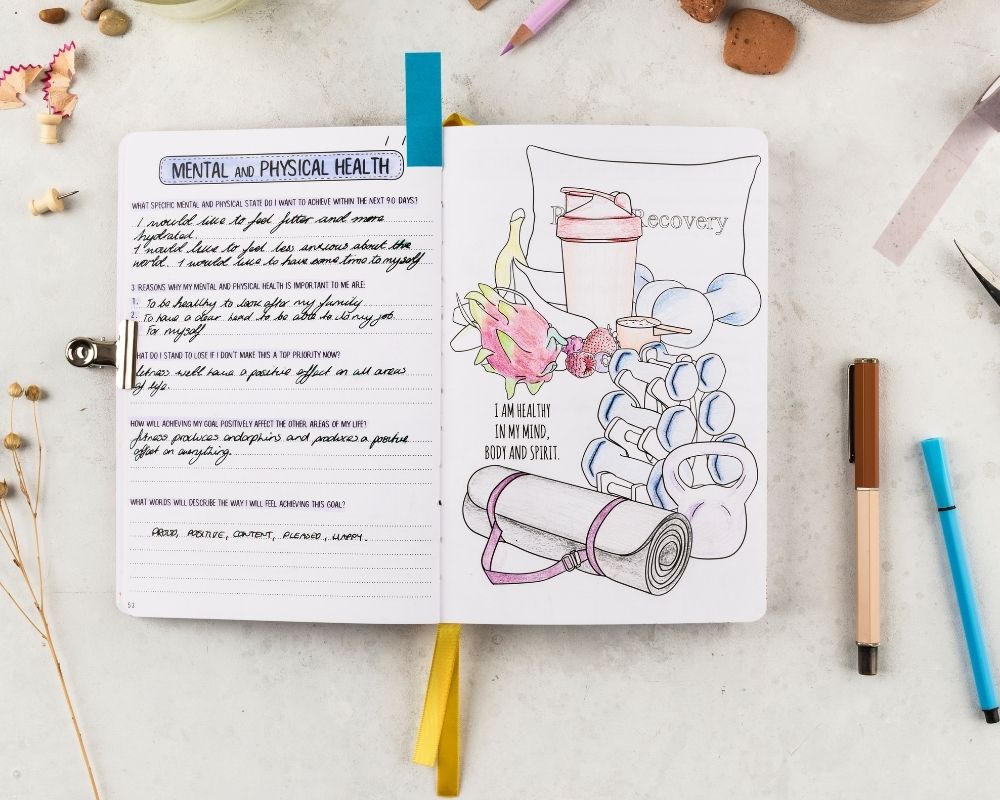 / /
MENTAL AND PHYSICAL HEALTH
WHAT SPECIFIC MENTAL AND PHYSICAL STATE DO I WANT TO ACHIEVE WITHIN THE NEXT 90 DAYS?
I would like to feel fitter and more
hydrated.
I would like to feel less anxious about the
world. I would like to have some time to myself
3 REASONS WHY MY MENTAL AND PHYSICAL HEALTH IS IMPORTANT TO ME ARE:
1. To be healthy to look after my family
2. To have a clear head to be able to do my job.
For myself
HAT DO I STAND TO LOSE IF I DON'T MAKE THIS A TOP PRIORITY NOW?
itness will have a positive effect on all areas
of life.
HOW WILL ACHIEVING MY GOAL POSITIVELY AFFECT THE OTHER AREAS OF MY LIFE?
fitness produces endorphins and produces a positive
effect on everything.
WHAT WORDS WILL DESCRIBE THE WAY I WILL FEEL ACHIEVING THIS GOAL?
PROUD, POSITIVE, CONTENT, PLEASED, HAPPY.
53
R Recovery
I AM HEALTHY
IN MY MIND,
BODY AND SPIRIT.